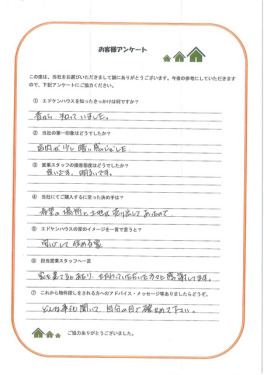 お客様アンケート
この度は、当社をお選びいただきまして誠にありがとうございます。今後の参考にしていただきます
ので、下記アンケートにご協力ください。
① エドケンハウスを知ったきっかけは何ですか？
昔から 知っていました。
② 当社の第一印象はどうでしたか？
店内が少し暗い感じでした
③ 営業スタッフの接客態度はどうでしたか？
良いです。明るいです。
④ 当社にてご購入するに至った決め手は？
希望の場所に土地が売り出してあったので
⑤ エドケンハウスの家のイメージを一言で言うと？
安心して住める家
⑥ 担当営業スタッフへ一言
家を建てるにあたり、
感謝してます。
⑦ これから物件探しをされる方へのアドバイス・メッセージ等ありましたらどうぞ。
どんな事も聞いて 自分の目で確かめて下さい。
ご協力ありがとうございました。